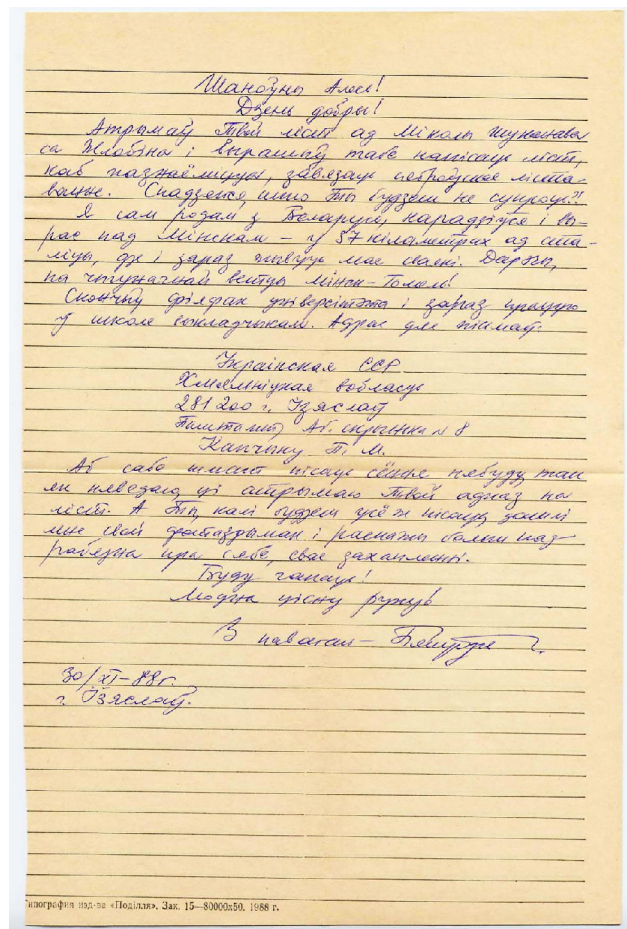 Шаноўны Алесь!
Дзень добры!
Атрымаў Твой ліст ад Міколы
са Жлобіна і вырашыў табе напісаць ліст,
каб пазнаёміцца, завязаць сяброўскае ліста-
ванне. Спадзяюся, што Ты будзеш не супроць?!
Я сам родам з Беларусі, нарадзіўся і вы-
рас пад Мінскам – у 57 кіламетрах ад ста-
ліцы, дзе і зараз жывуць мае сваякі.
на чыгуначнай ветцы Мінск-
Скончыў філфак універсітэта і зараз працую
ў школе выкладчыкам. Адрас для пісьмаў:
Украінская ССР
Хмяльніцкая вобласць
281200 г. Ізяслаў
Паштамт, Аб. скрынка № 8
Капчыну П. М.
Аб сабе шмат пісаць сёння ня буду, так
як няведаю ці атрымаю Твой адказ на
ліст. А Ты, калі будзеш усё ж пісаць,
мне свой фотаздымак і раскажы больш пад-
рабязна пра сябе, свае захапленні.
Буду чакаць!
Моцна цісну руку!
З павагаю –
30/XI-88г.
г. Ізяслаў.
Типография изд-ва «Поділля». Зак. 15—80000х50. 1988 г.